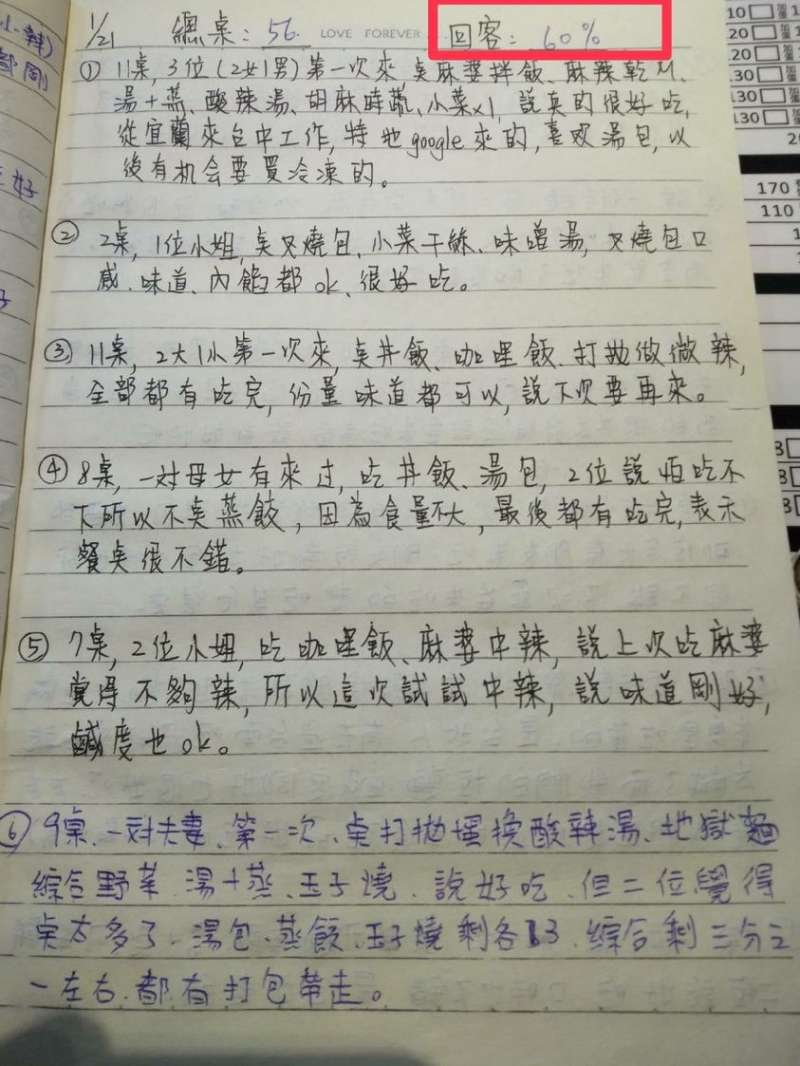 1/21 總桌: 56. LOVE FOREVER 回客: 60%
① 11桌, 3位(2女1男)第一次來, 桌麻婆拌飯、麻辣乾M、
湯+蒸、酸辣湯、胡麻時蔬、小菜x1, 說真的很好吃,
從宜蘭來台中工作, 特地google來的, 喜歡湯包, 以
後有机会要買冷凍的。
② 2桌, 1位小姐, 桌叉燒包、小菜干絲、味噌湯, 叉燒包口
感、味道、內餡都ok、很好吃。
③ 11桌, 2大1小第一次來, 桌丼飯、咖哩飯、打拋做微辣,
全部都有吃完, 份量味道都可以, 說下次要再來。
④ 8桌, 一對母女有來过, 吃丼飯、湯包, 2位說怕吃不
下所以不桌蒸餃, 因為食量不大, 最後都有吃完, 表示
餐桌很不錯。
⑤ 7桌, 2位小姐, 吃咖哩飯、麻婆中辣, 說上次吃麻婆
覺得不夠辣, 所以這次試試中辣, 說味道剛好,
鹹度也ok。
⑥ 9桌、一对夫妻、第一次、桌打拋換酸辣湯、地獄麵
綜合野菜 湯+蒸、玉子燒、說好吃、但二位覺得
桌太多了、湯包、蒸餃、玉子燒剩各3、綜合剩三分之
一左右、都有打包帶走。
小辣)
都剛
好
10
20
20
130
130
170
110